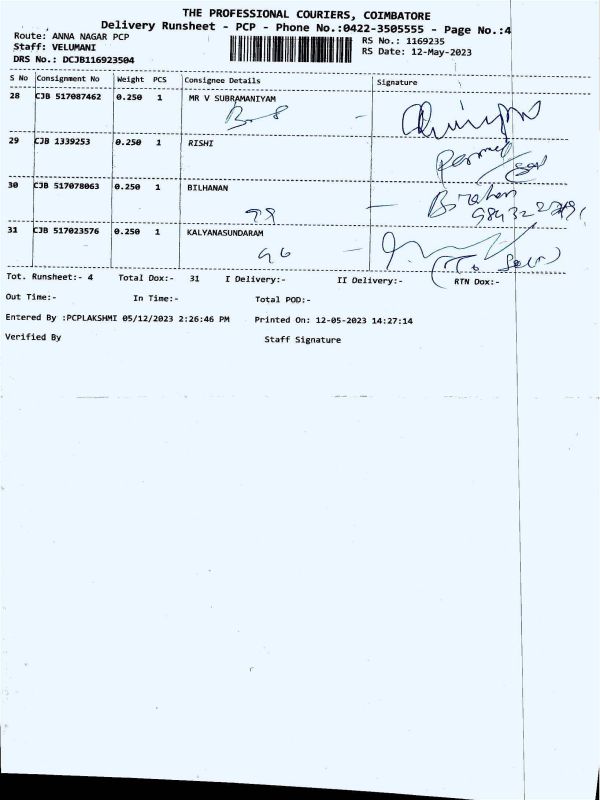 THE PROFESSIONAL COURIERS, COIMBATORE
Delivery Runsheet - PCP - Phone No.:0422-3505555 - Page No.:4
Route: ANNA NAGAR PCP
RS No.: 1169235
Staff: VELUMANI
RS Date: 12-May-2023
DRS No.: DCJB116923504
S No Consignment No Weight PCS Consignee Details Signature
28 CJB 517087462 0.250 1 MR V SUBRAMANIYAM
29 CJB 1339253 0.250 1 RISHI
30 CJB 517078063 0.250 1 BILHANAN
31 CJB 517023576 0.250 1 KALYANASUNDARAM
Tot. Runsheet:- 4 Total Dox:- 31 I Delivery:- II Delivery:- RTN Dox:-
Out Time:- In Time:- Total POD:-
Entered By :PCPLAKSHMI 05/12/2023 2:26:46 PM Printed On: 12-05-2023 14:27:14
Verified By Staff Signature